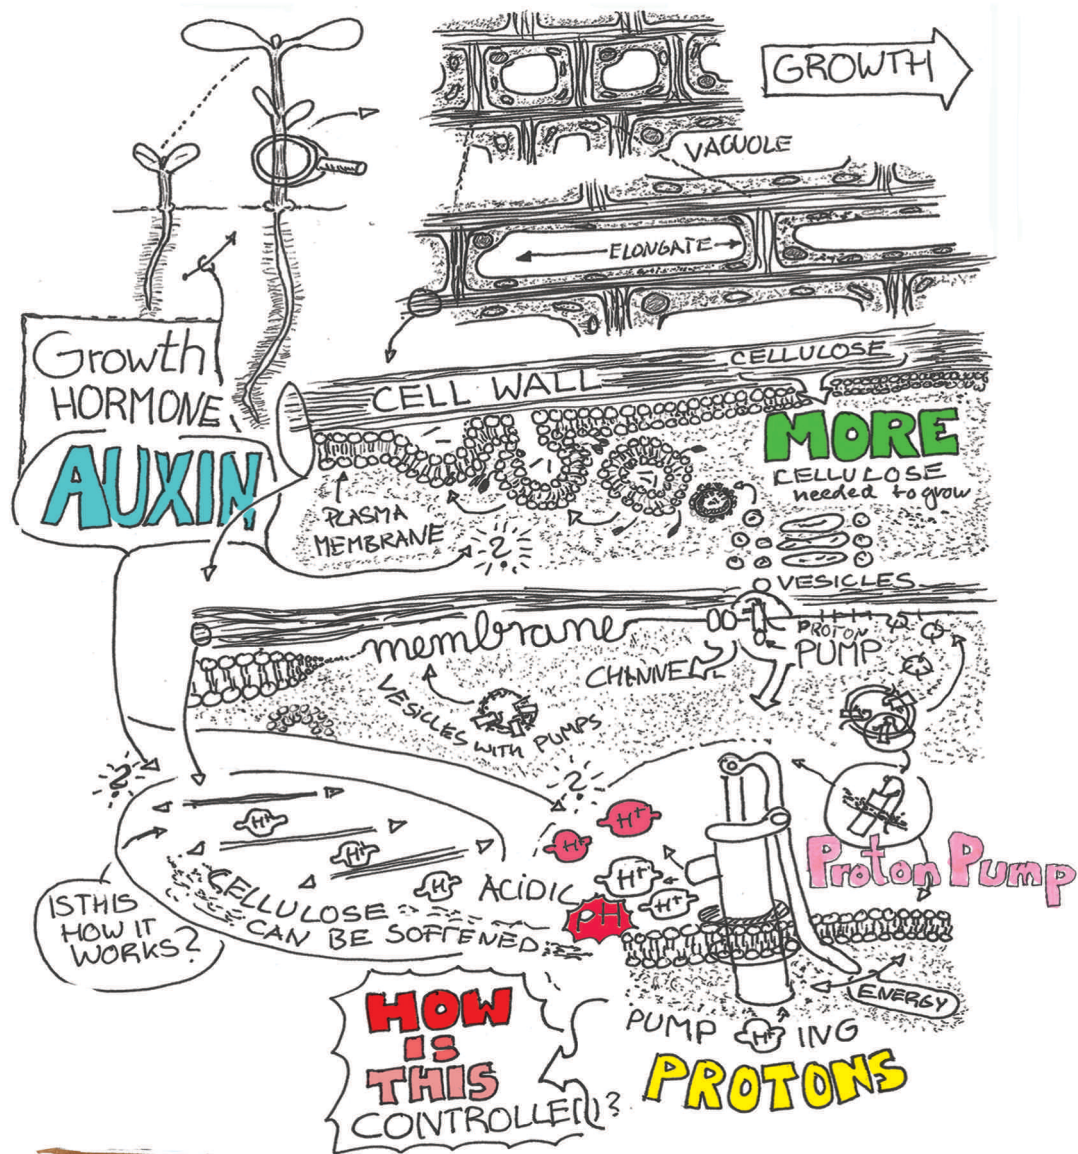 GROWTH
VACUOLE
ELONGATE
Growth
HORMONE
AUXIN
CELLULOSE
CELL WALL
MORE
CELLULOSE
needed to grow
PLASMA
MEMBRANE
?
VESICLES
membrane
PROTON
PUMP
CHANNEL
VESICLES WITH PUMPS
?
?
H+
H+
H+
H+
H+
H+
H+
Proton Pump
CELLULOSE
CAN BE SOFTENED
ACIDIC
PH
IS THIS
HOW IT
WORKS?
ENERGY
PUMP H+ ING
PROTONS
HOW
IS
THIS
CONTROLLED?